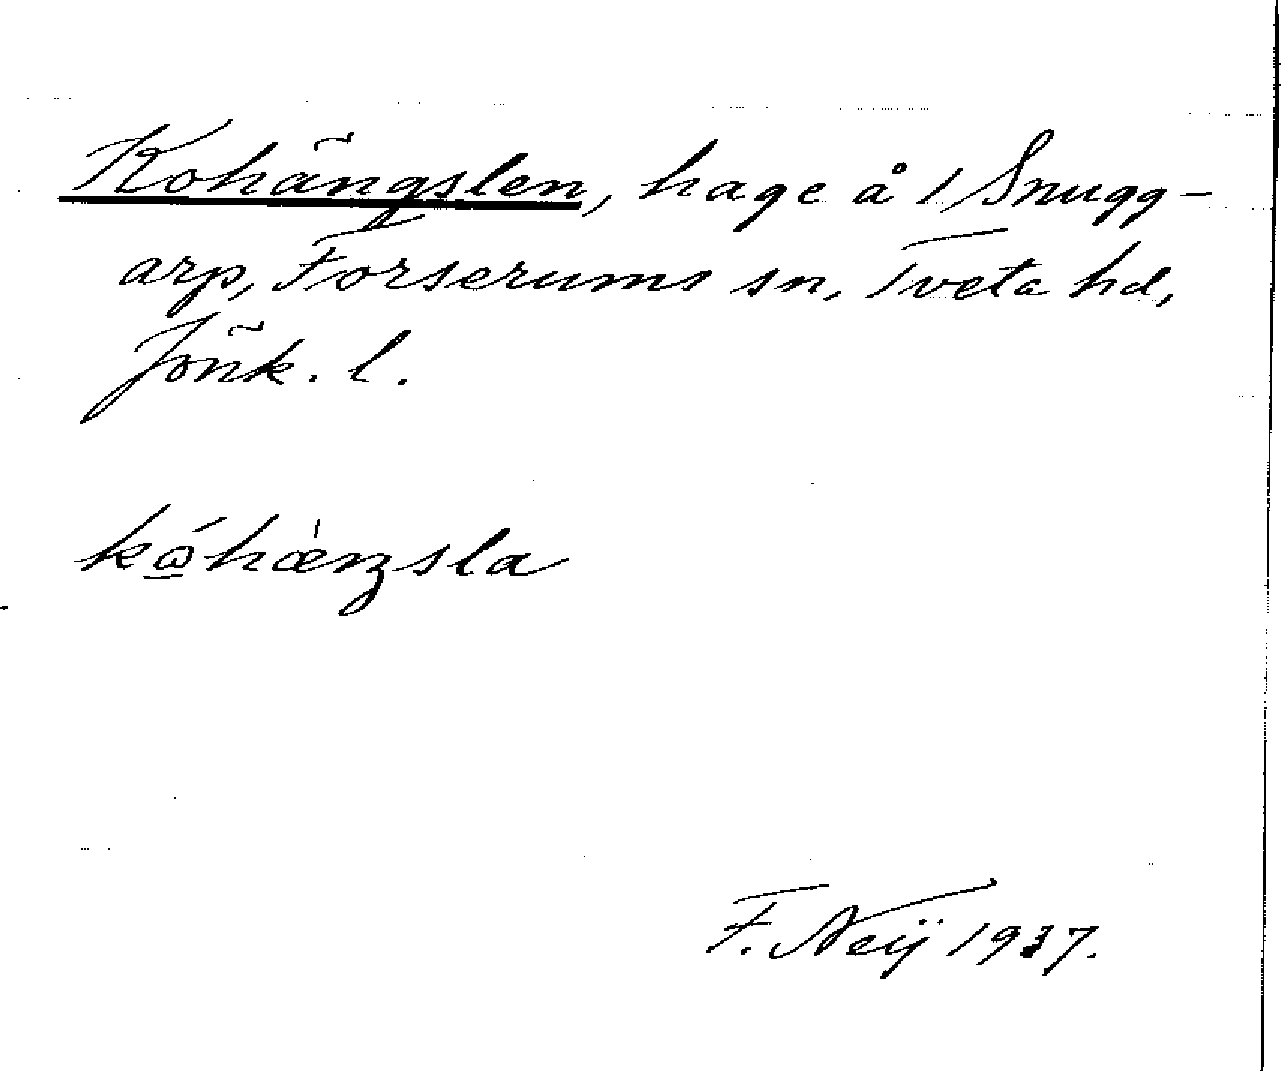 Kohängslen, hage å 1/ Snugg-
arp, Forserums sn, Tveta hd,
Jönk. l.
F. Neij 1937.